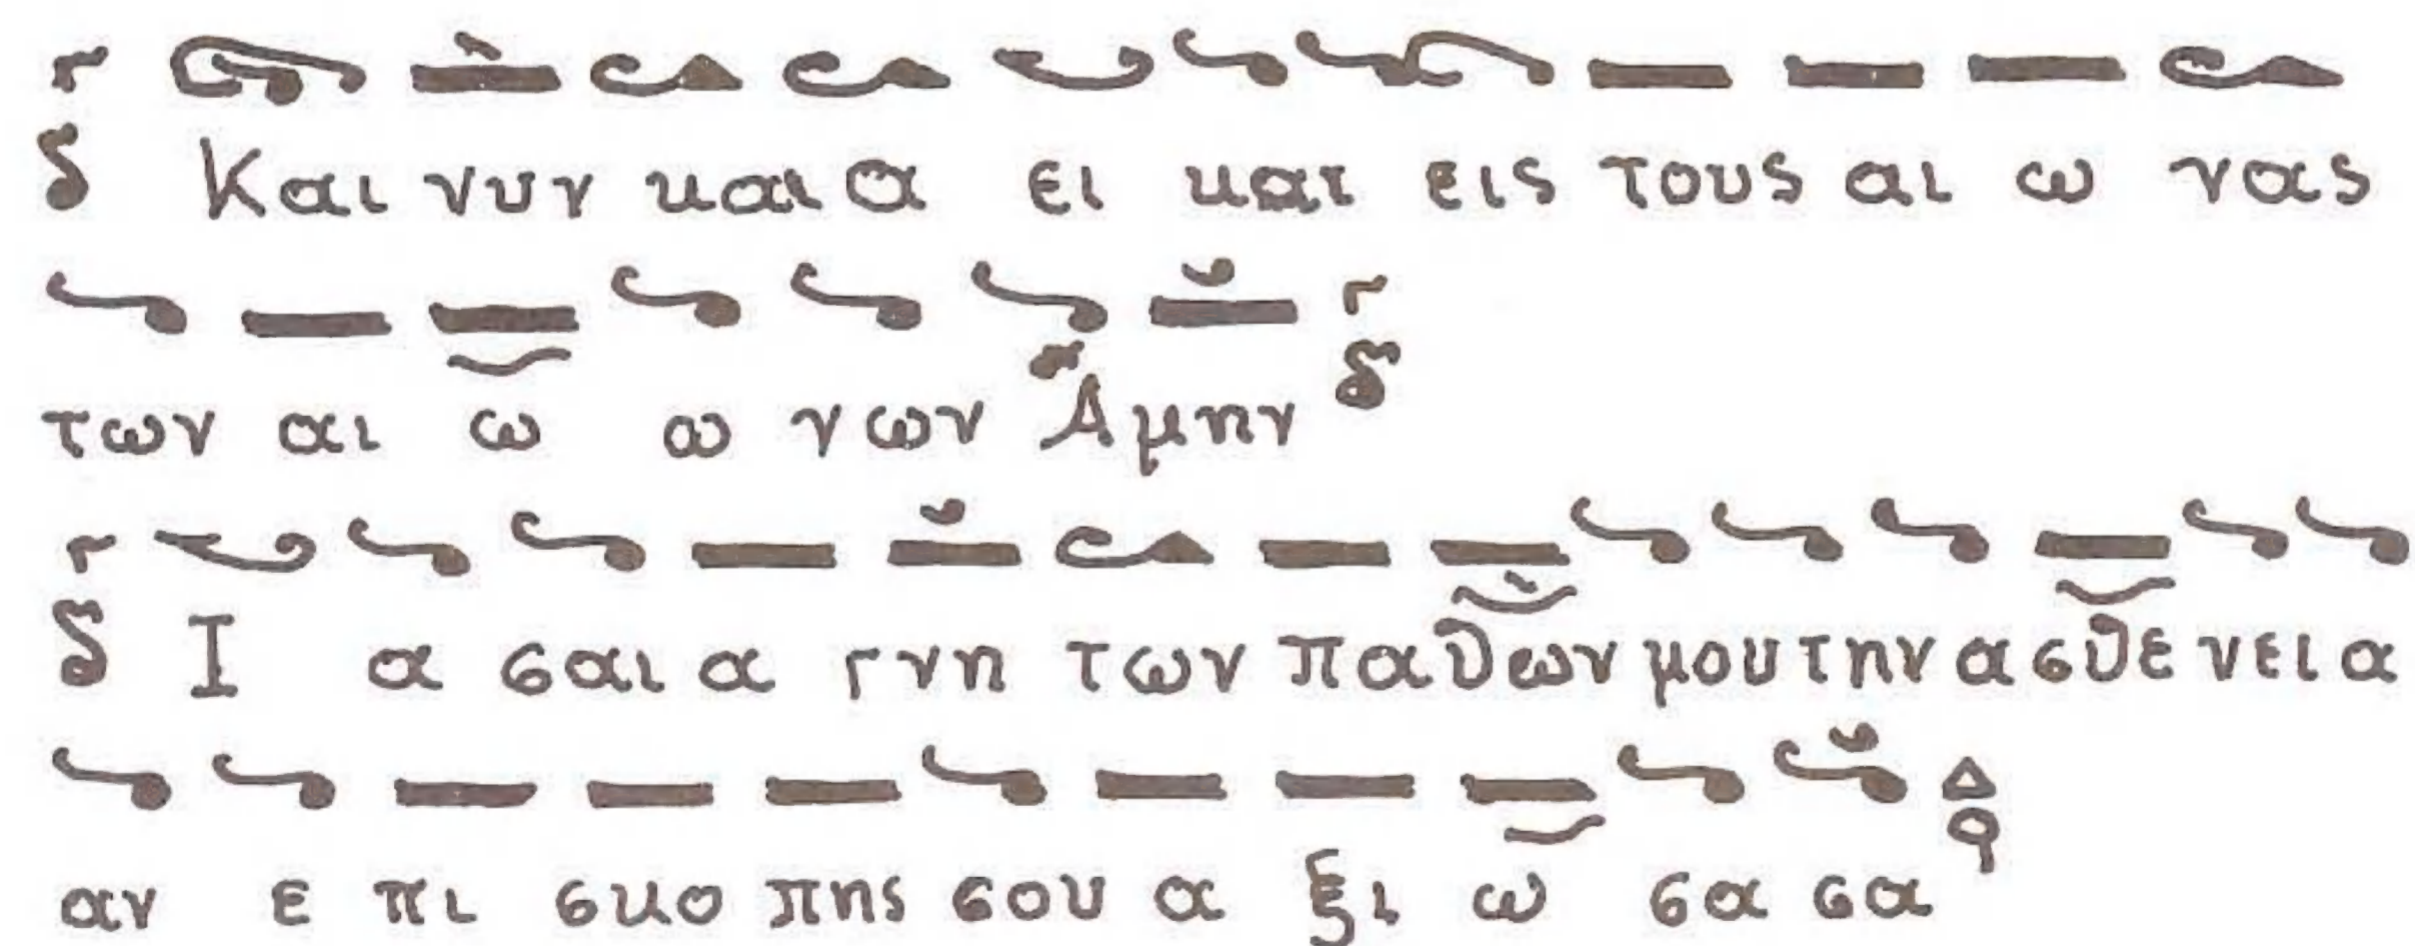 Και νυν και α ει και εις τους αι ω νας
των αι ω ω νων Αμην
Ι α σαι α γνη των παθων μου την ασθε νει α
αν ε πι σκο πης σου α ξι ω σα σα